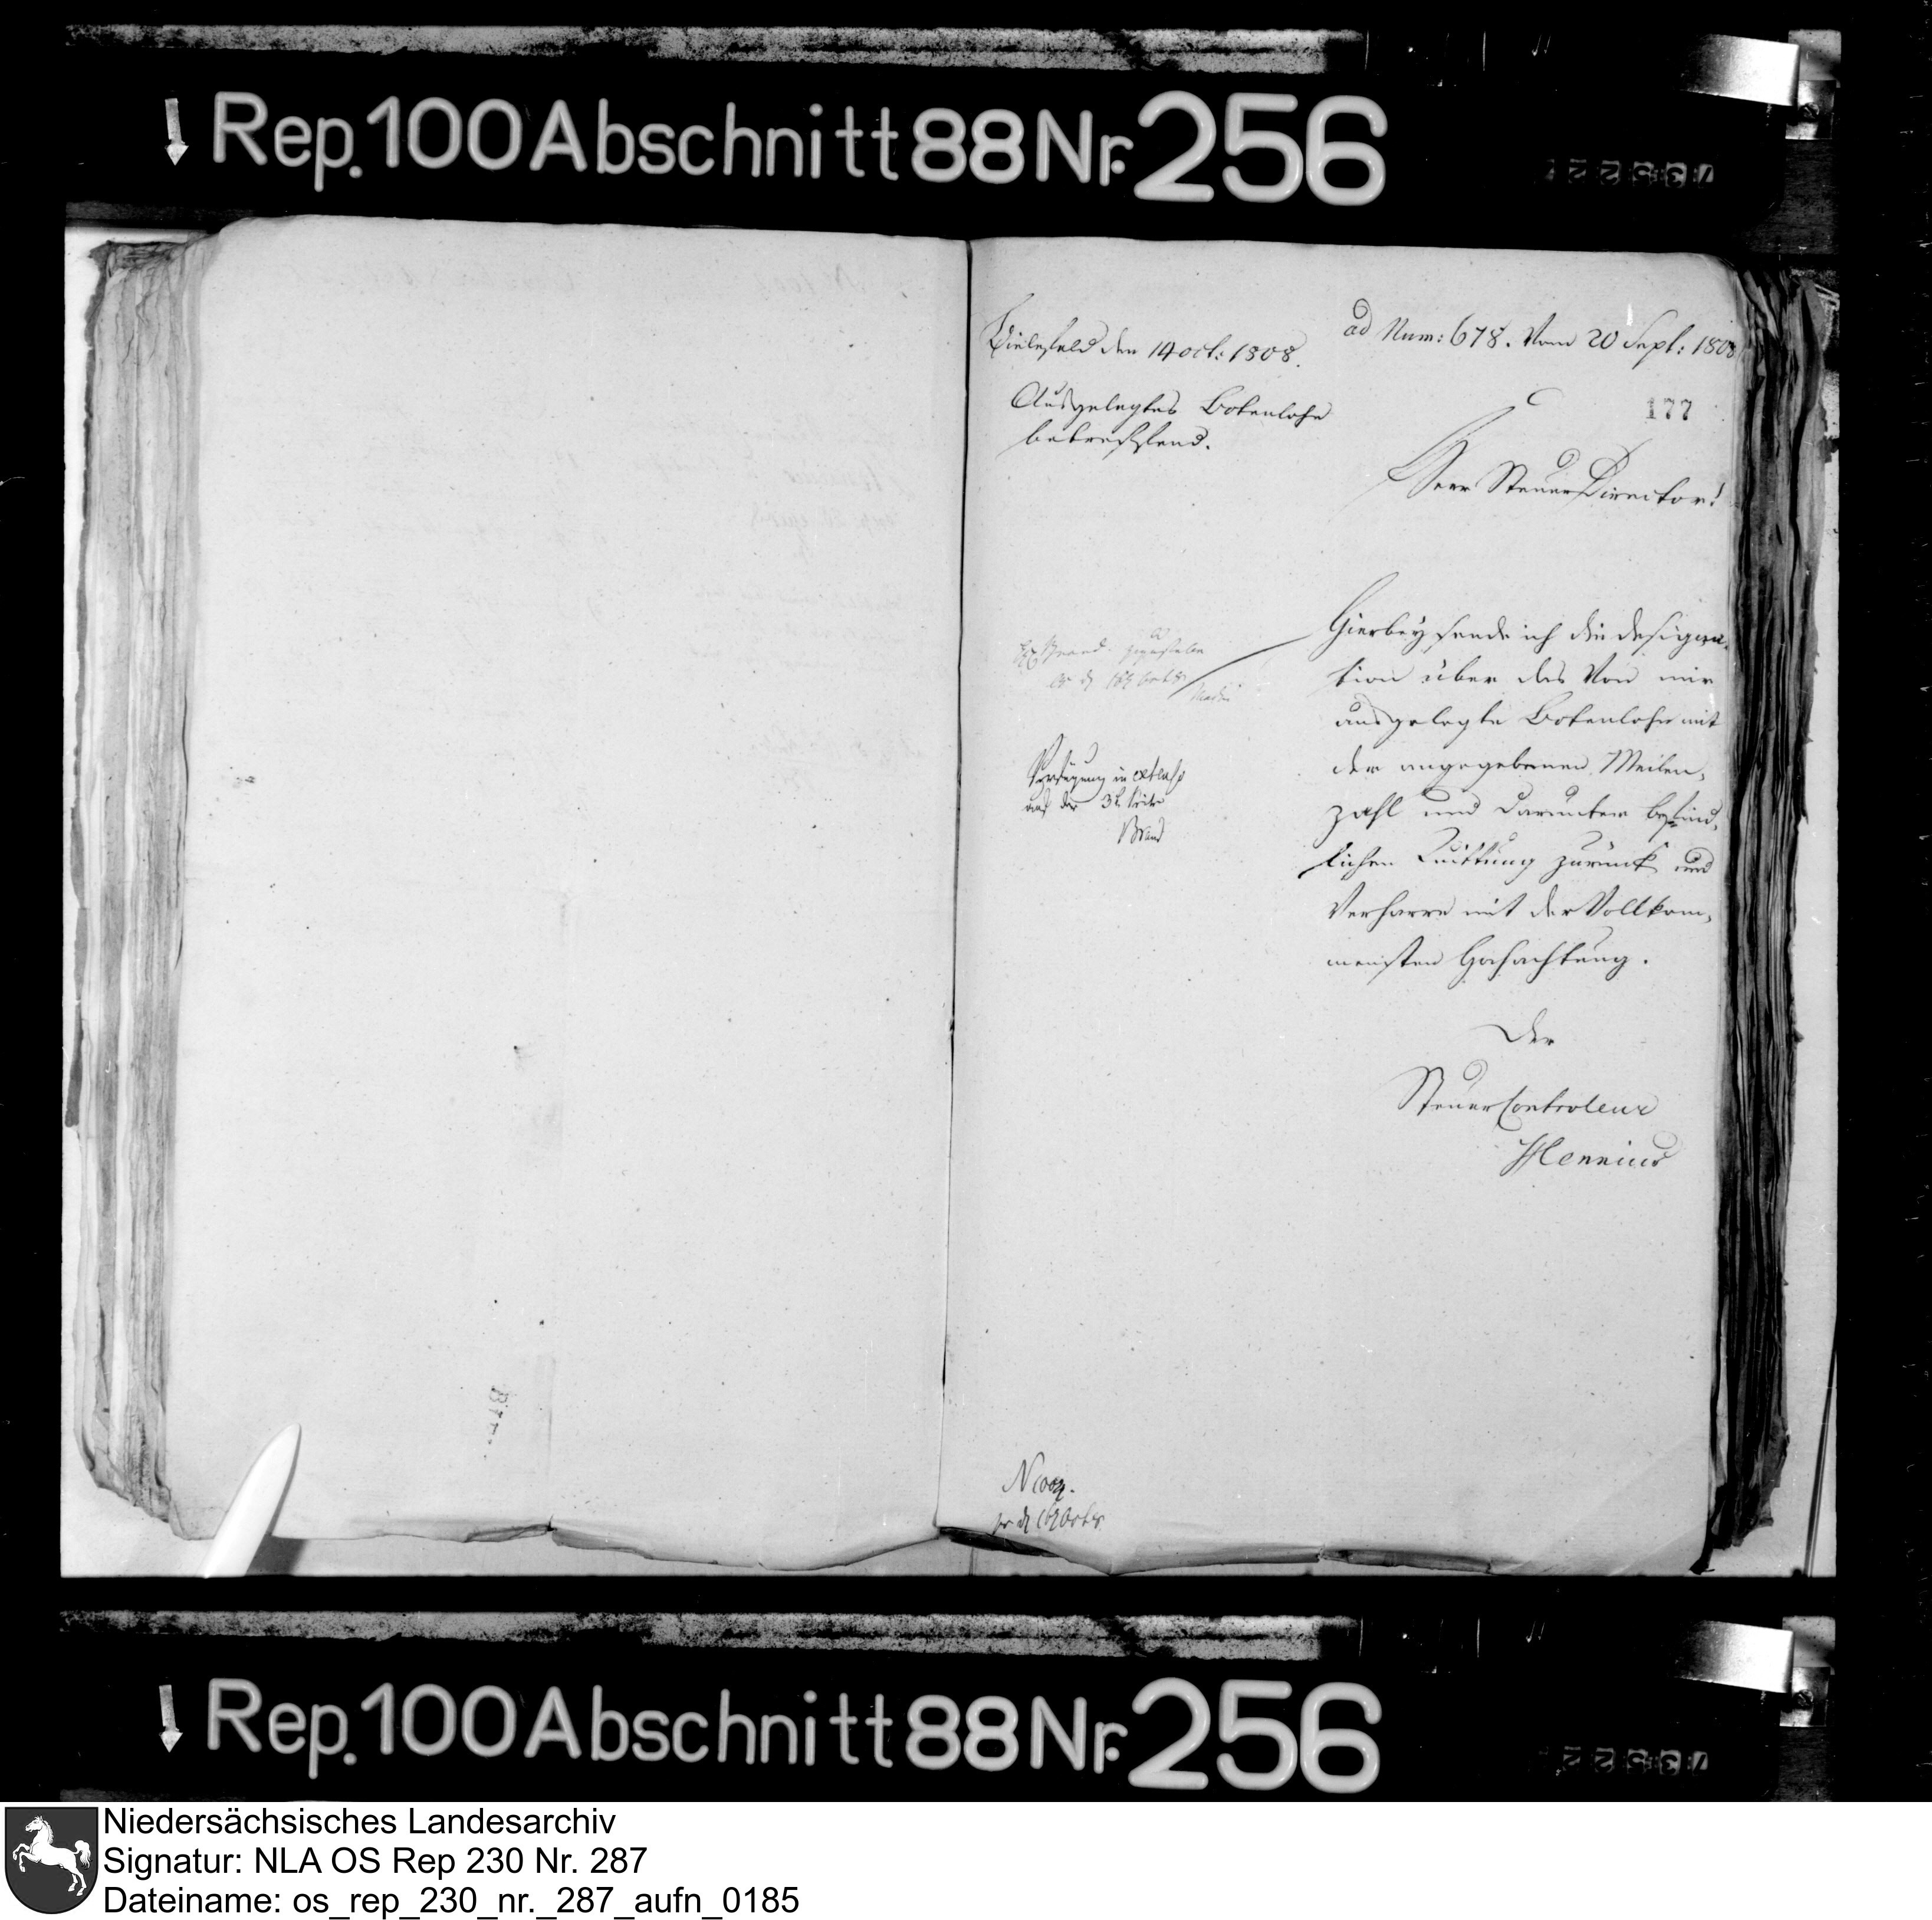 Rep. 100 Abschnitt 88 Nr. 256
Bielefeld den 14 oct: 1808.
ad Num: 678. Vom 20 Sept: 1808
177
Ausgelegtes Botenlohn
betreffend.
Herr SteuerDirector!
Hierbey sende ich die designa-
tion über das Von mir
ausgelegte Botenlohn mit
der angegebenen Meilen,
zahl und darunter befind,
lichen Quittung zurück und
Verharre mit der Vollkom,
mensten Hochachtung.
Der
SteuerControleur
Hennius
Verfügung in
auf der 3t. Seite
Brand
Rep. 100 Abschnitt 88 Nr. 256
Niedersächsisches Landesarchiv
Signatur: NLA OS Rep 230 Nr. 287
Dateiname: os_rep_230_nr._287_aufn_0185